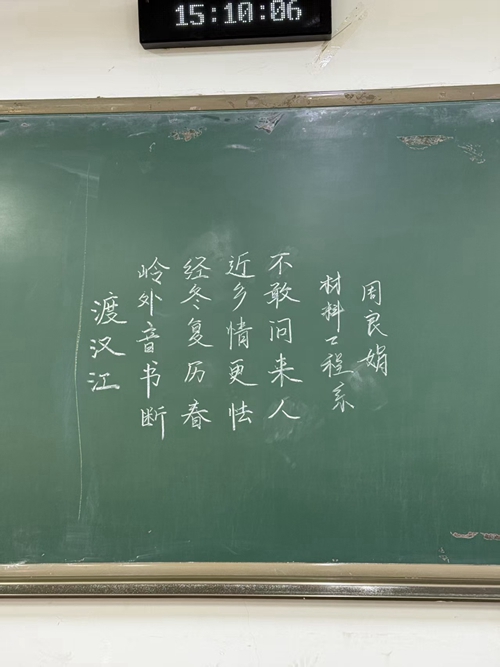 15:10:06
渡汉江
岭外音书断
经冬复历春
近乡情更怯
不敢问来人
材料工程系
周良娟